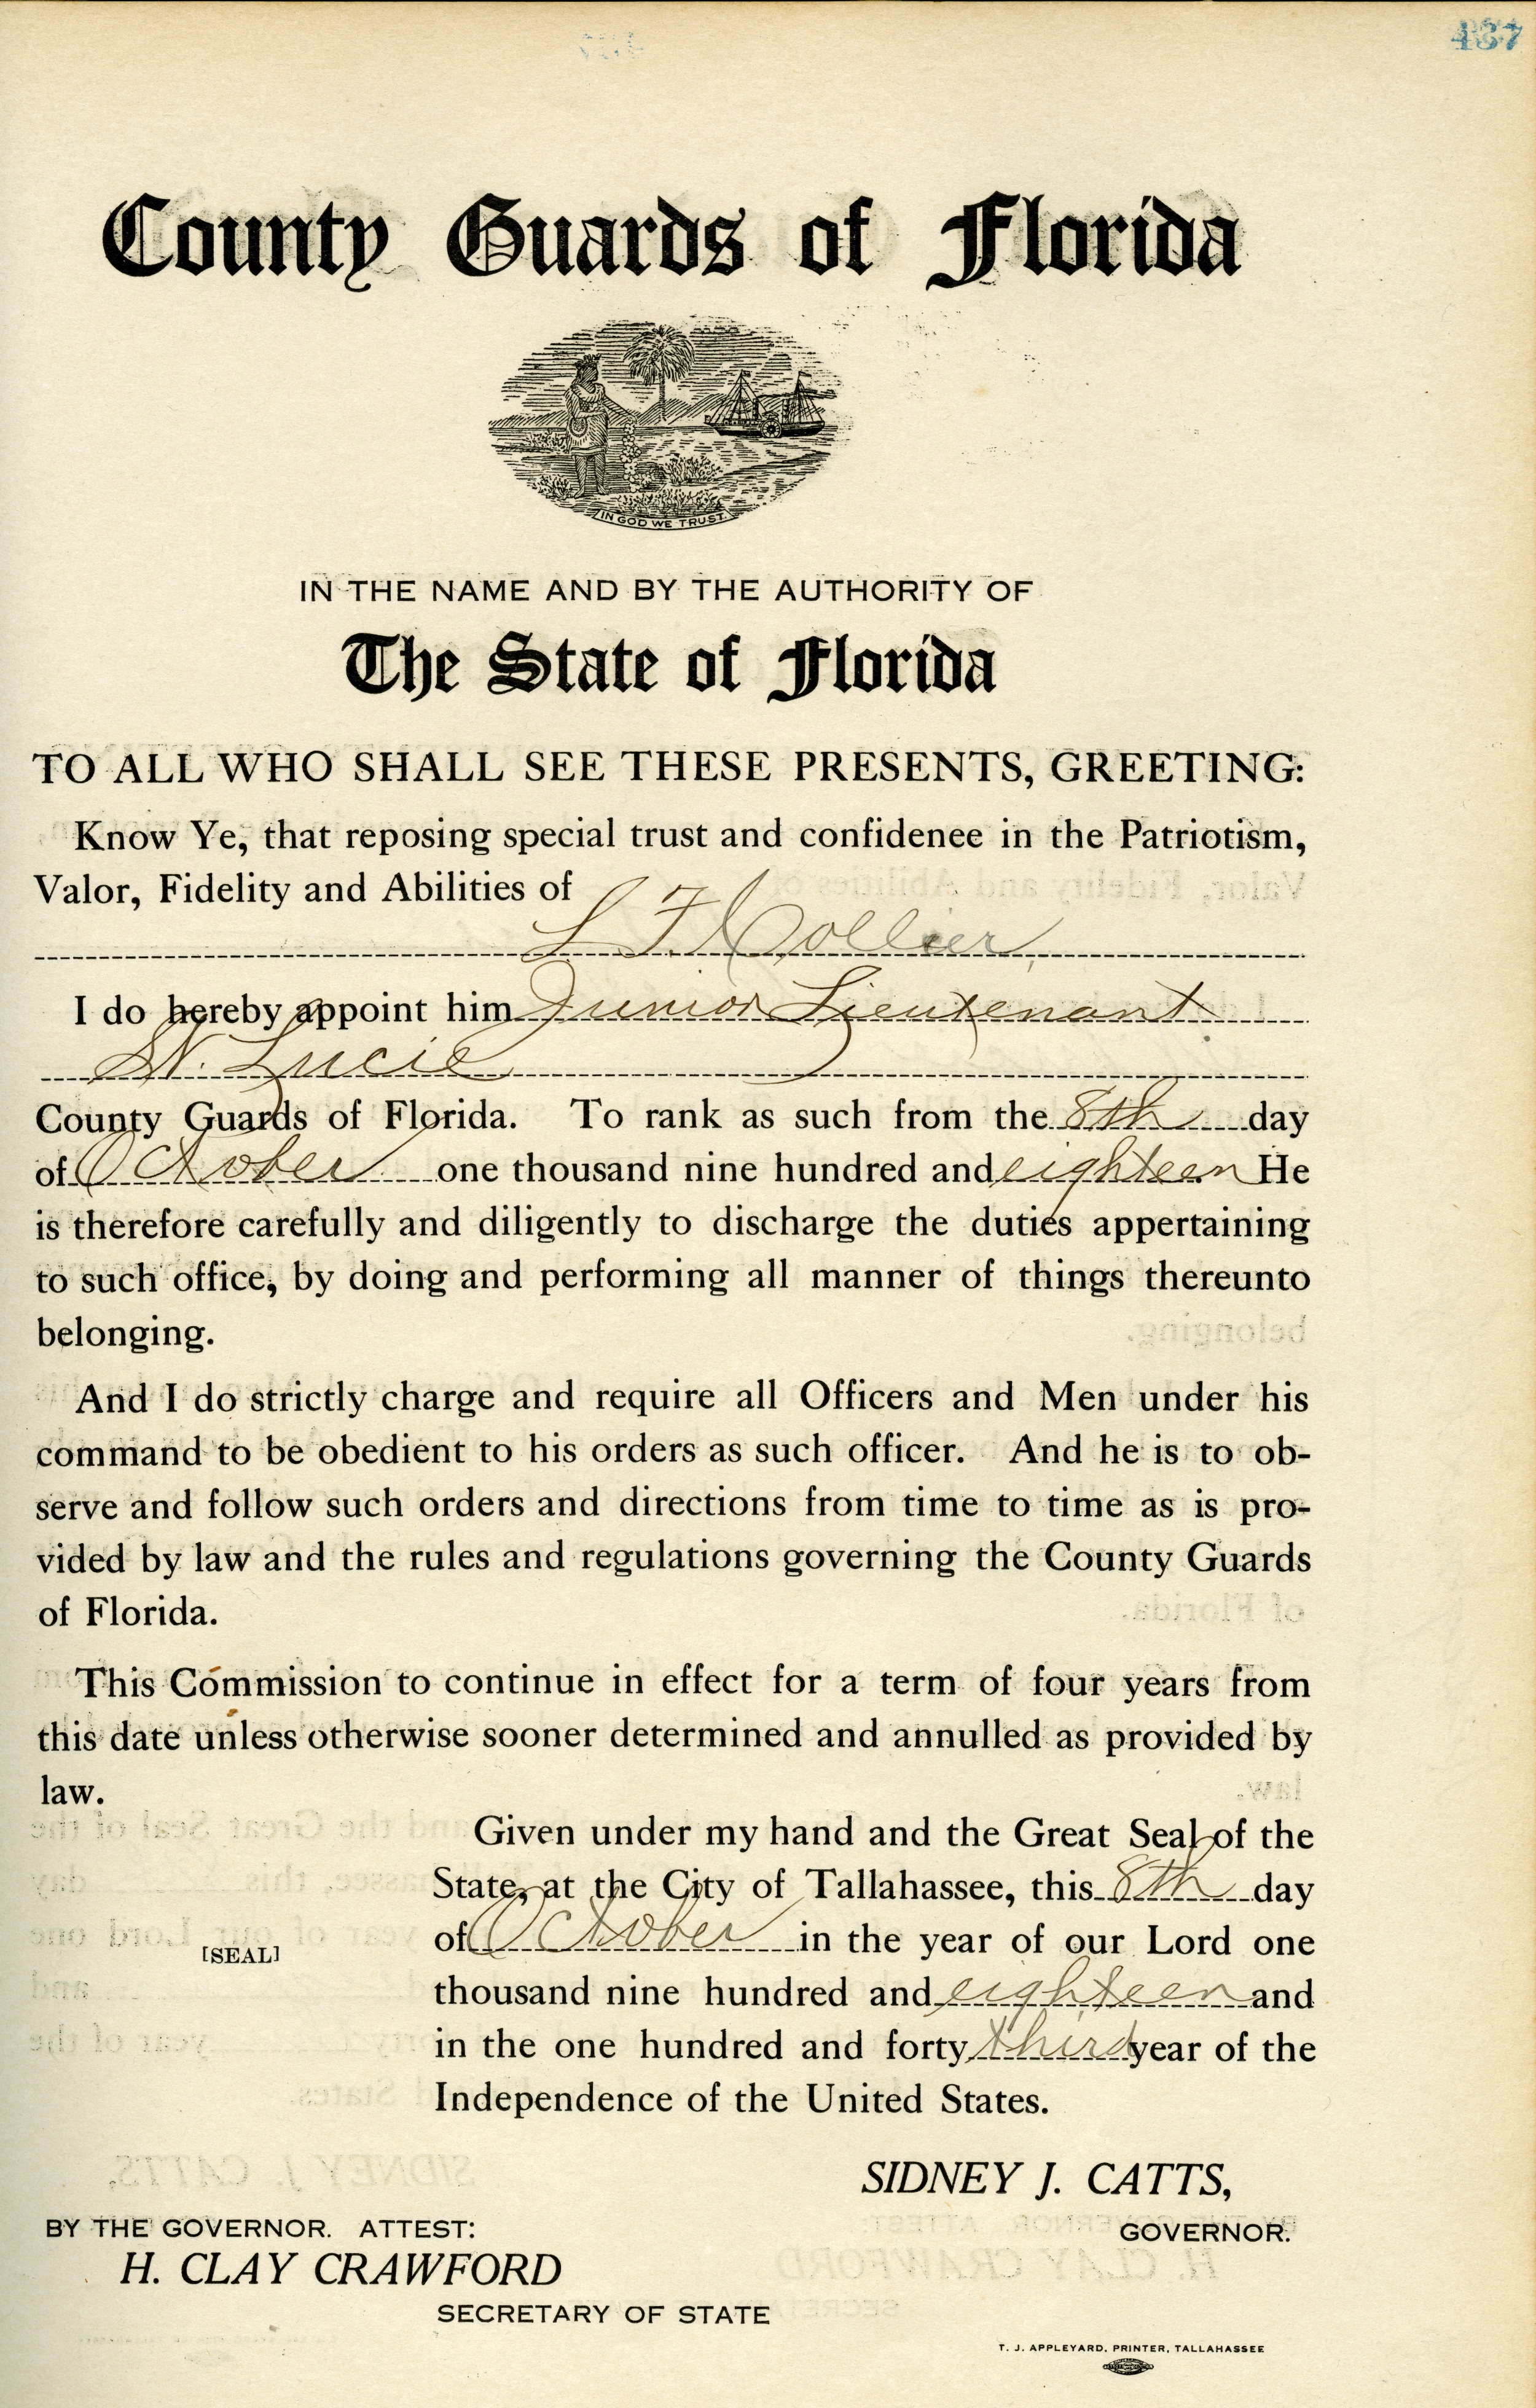 437
County Guards of Florida
IN GOD WE TRUST.
IN THE NAME AND BY THE AUTHORITY OF
The State of Florida
TO ALL WHO SHALL SEE THESE PRESENTS, GREETING:
Know Ye, that reposing special trust and confidenee in the Patriotism,
Valor, Fidelity and Abilities of
L F Collier,
I do hereby appoint him Junior Lieutenant
St. Lucie
County Guards of Florida. To rank as such from the 8th day
of October one thousand nine hundred and eighteen He
is therefore carefully and diligently to discharge the duties appertaining
to such office, by doing and performing all manner of things thereunto
belonging.
And I do strictly charge and require all Officers and Men under his
command to be obedient to his orders as such officer. And he is to ob-
serve and follow such orders and directions from time to time as is pro-
vided by law and the rules and regulations governing the County Guards
of Florida.
This Commission to continue in effect for a term of four years from
this date unless otherwise sooner determined and annulled as provided by
law.
Given under my hand and the Great Seal of the
State, at the City of Tallahassee, this 8th day
of October in the year of our Lord one
[SEAL]
thousand nine hundred and eighteen and
in the one hundred and forty third year of the
Independence of the United States.
SIDNEY J. CATTS,
GOVERNOR.
BY THE GOVERNOR. ATTEST:
H. CLAY CRAWFORD
SECRETARY OF STATE
T. J. APPLEYARD, PRINTER, TALLAHASSEE